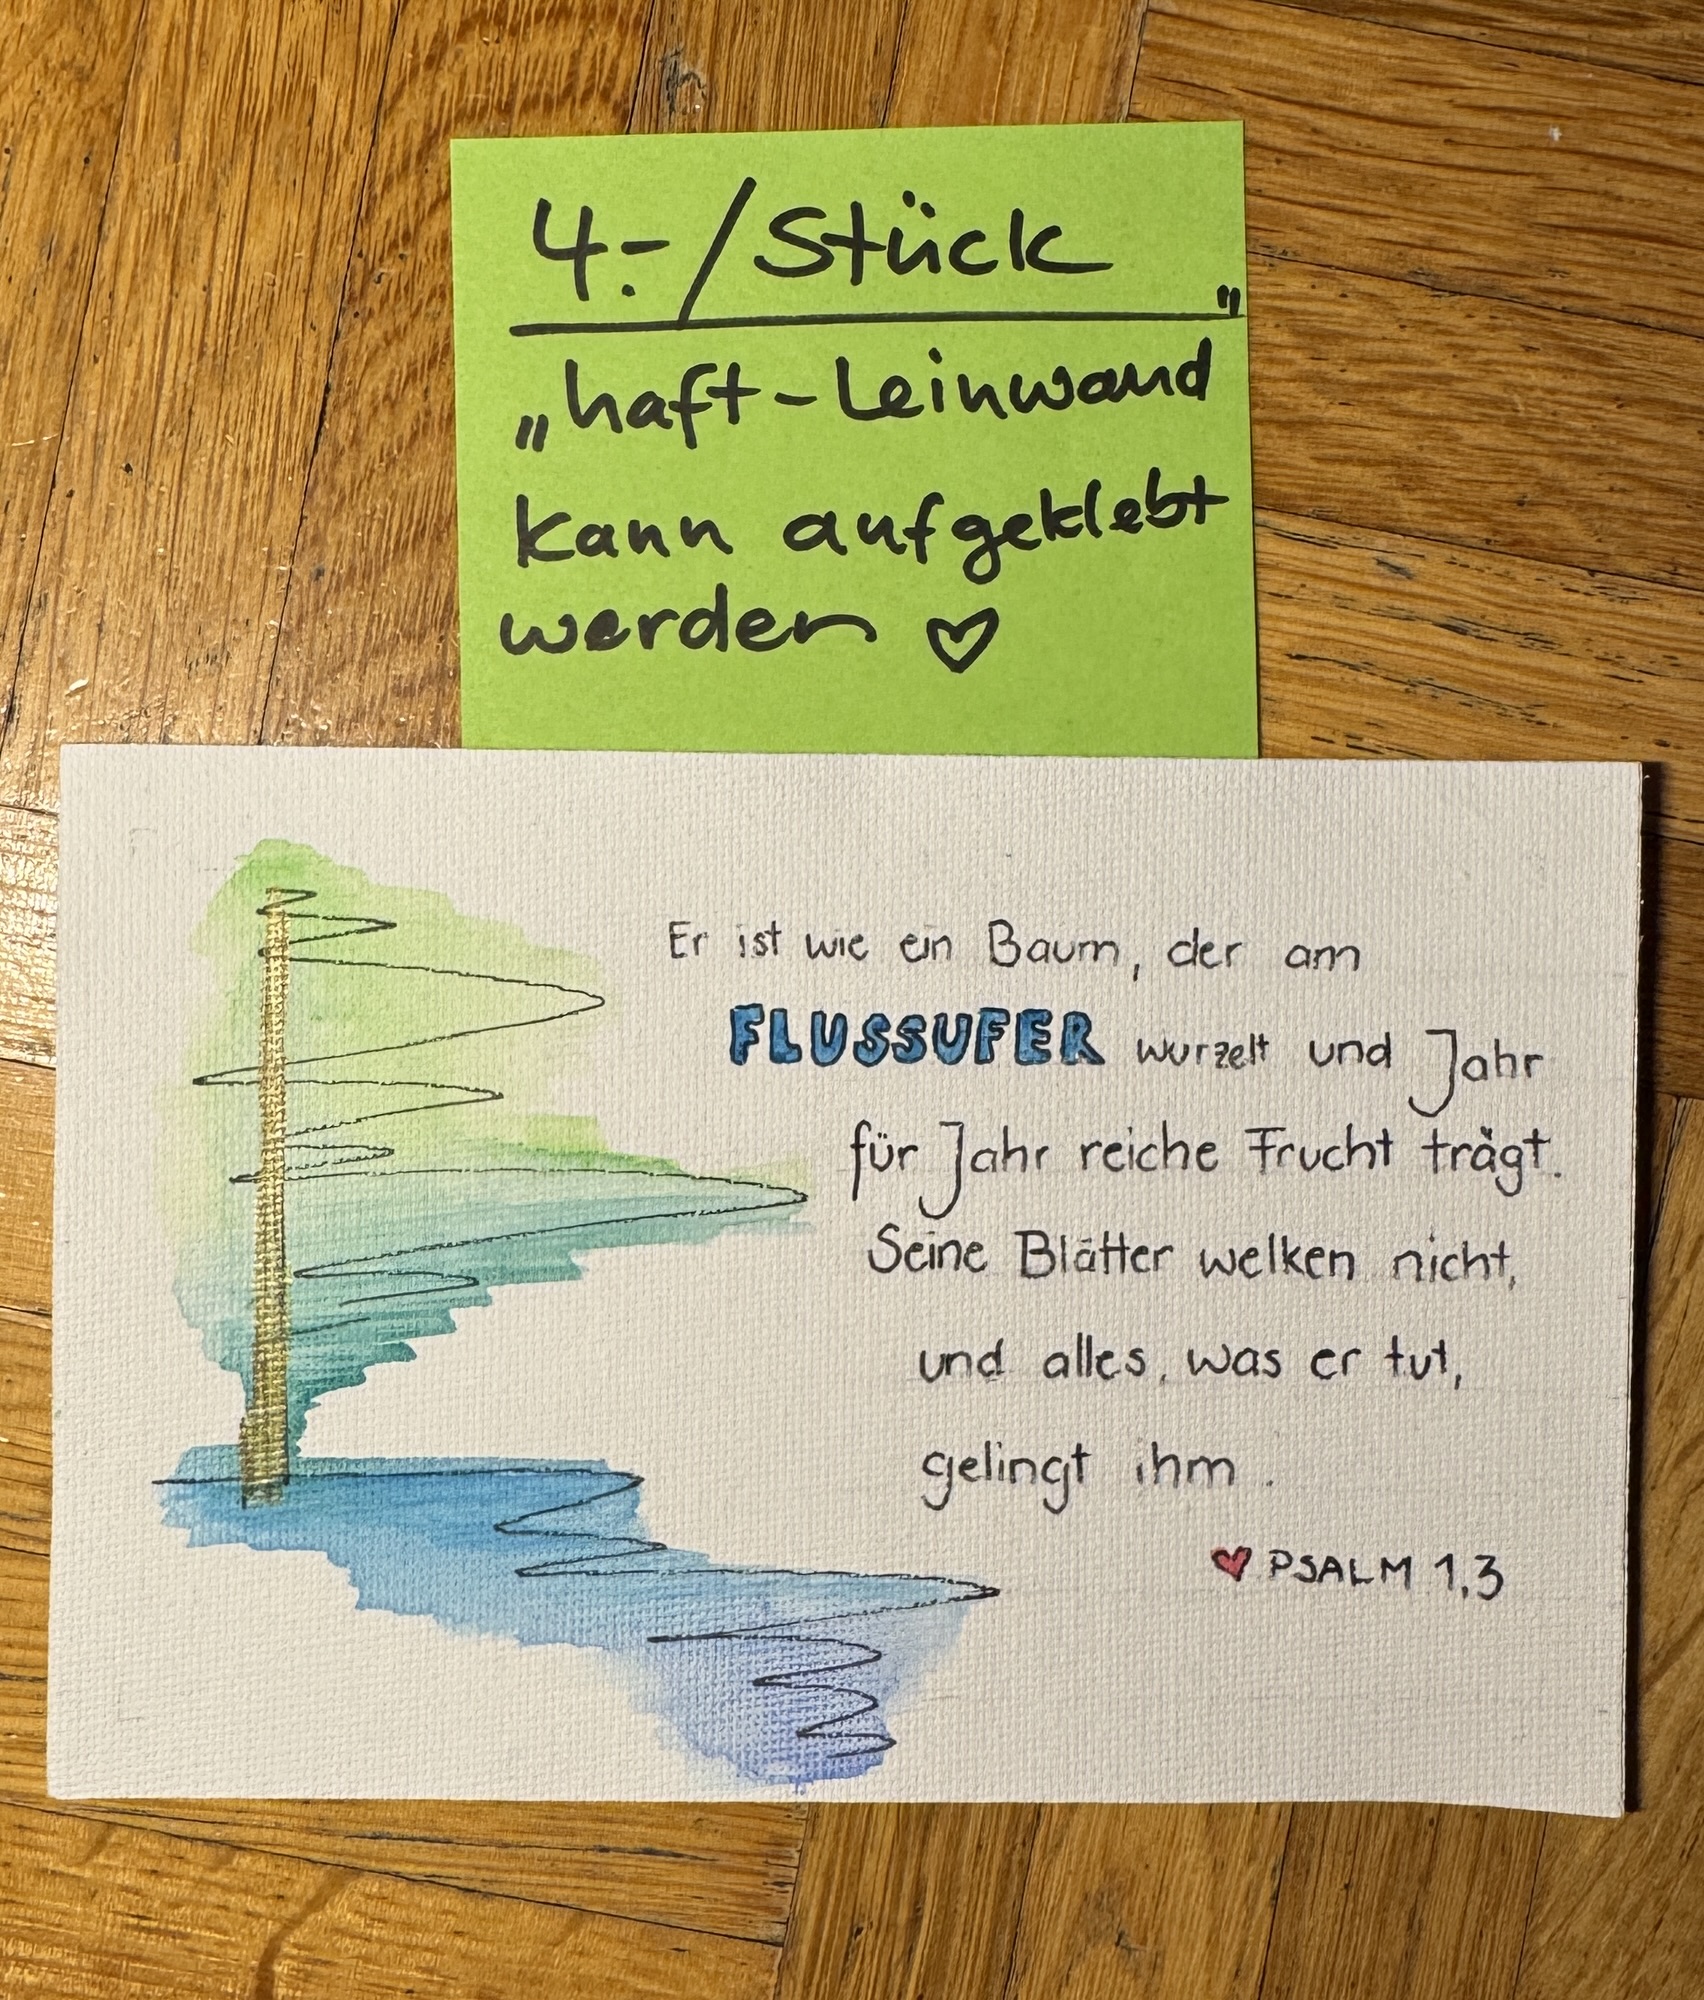 4.-/Stück
„haft-Leinwand"
kann aufgeklebt
werden ♡
Er ist wie ein Baum, der am
FLUSSUFER wurzelt und Jahr
für Jahr reiche Frucht trägt.
Seine Blätter welken nicht,
und alles, was er tut,
gelingt ihm.
♥ PSALM 1,3